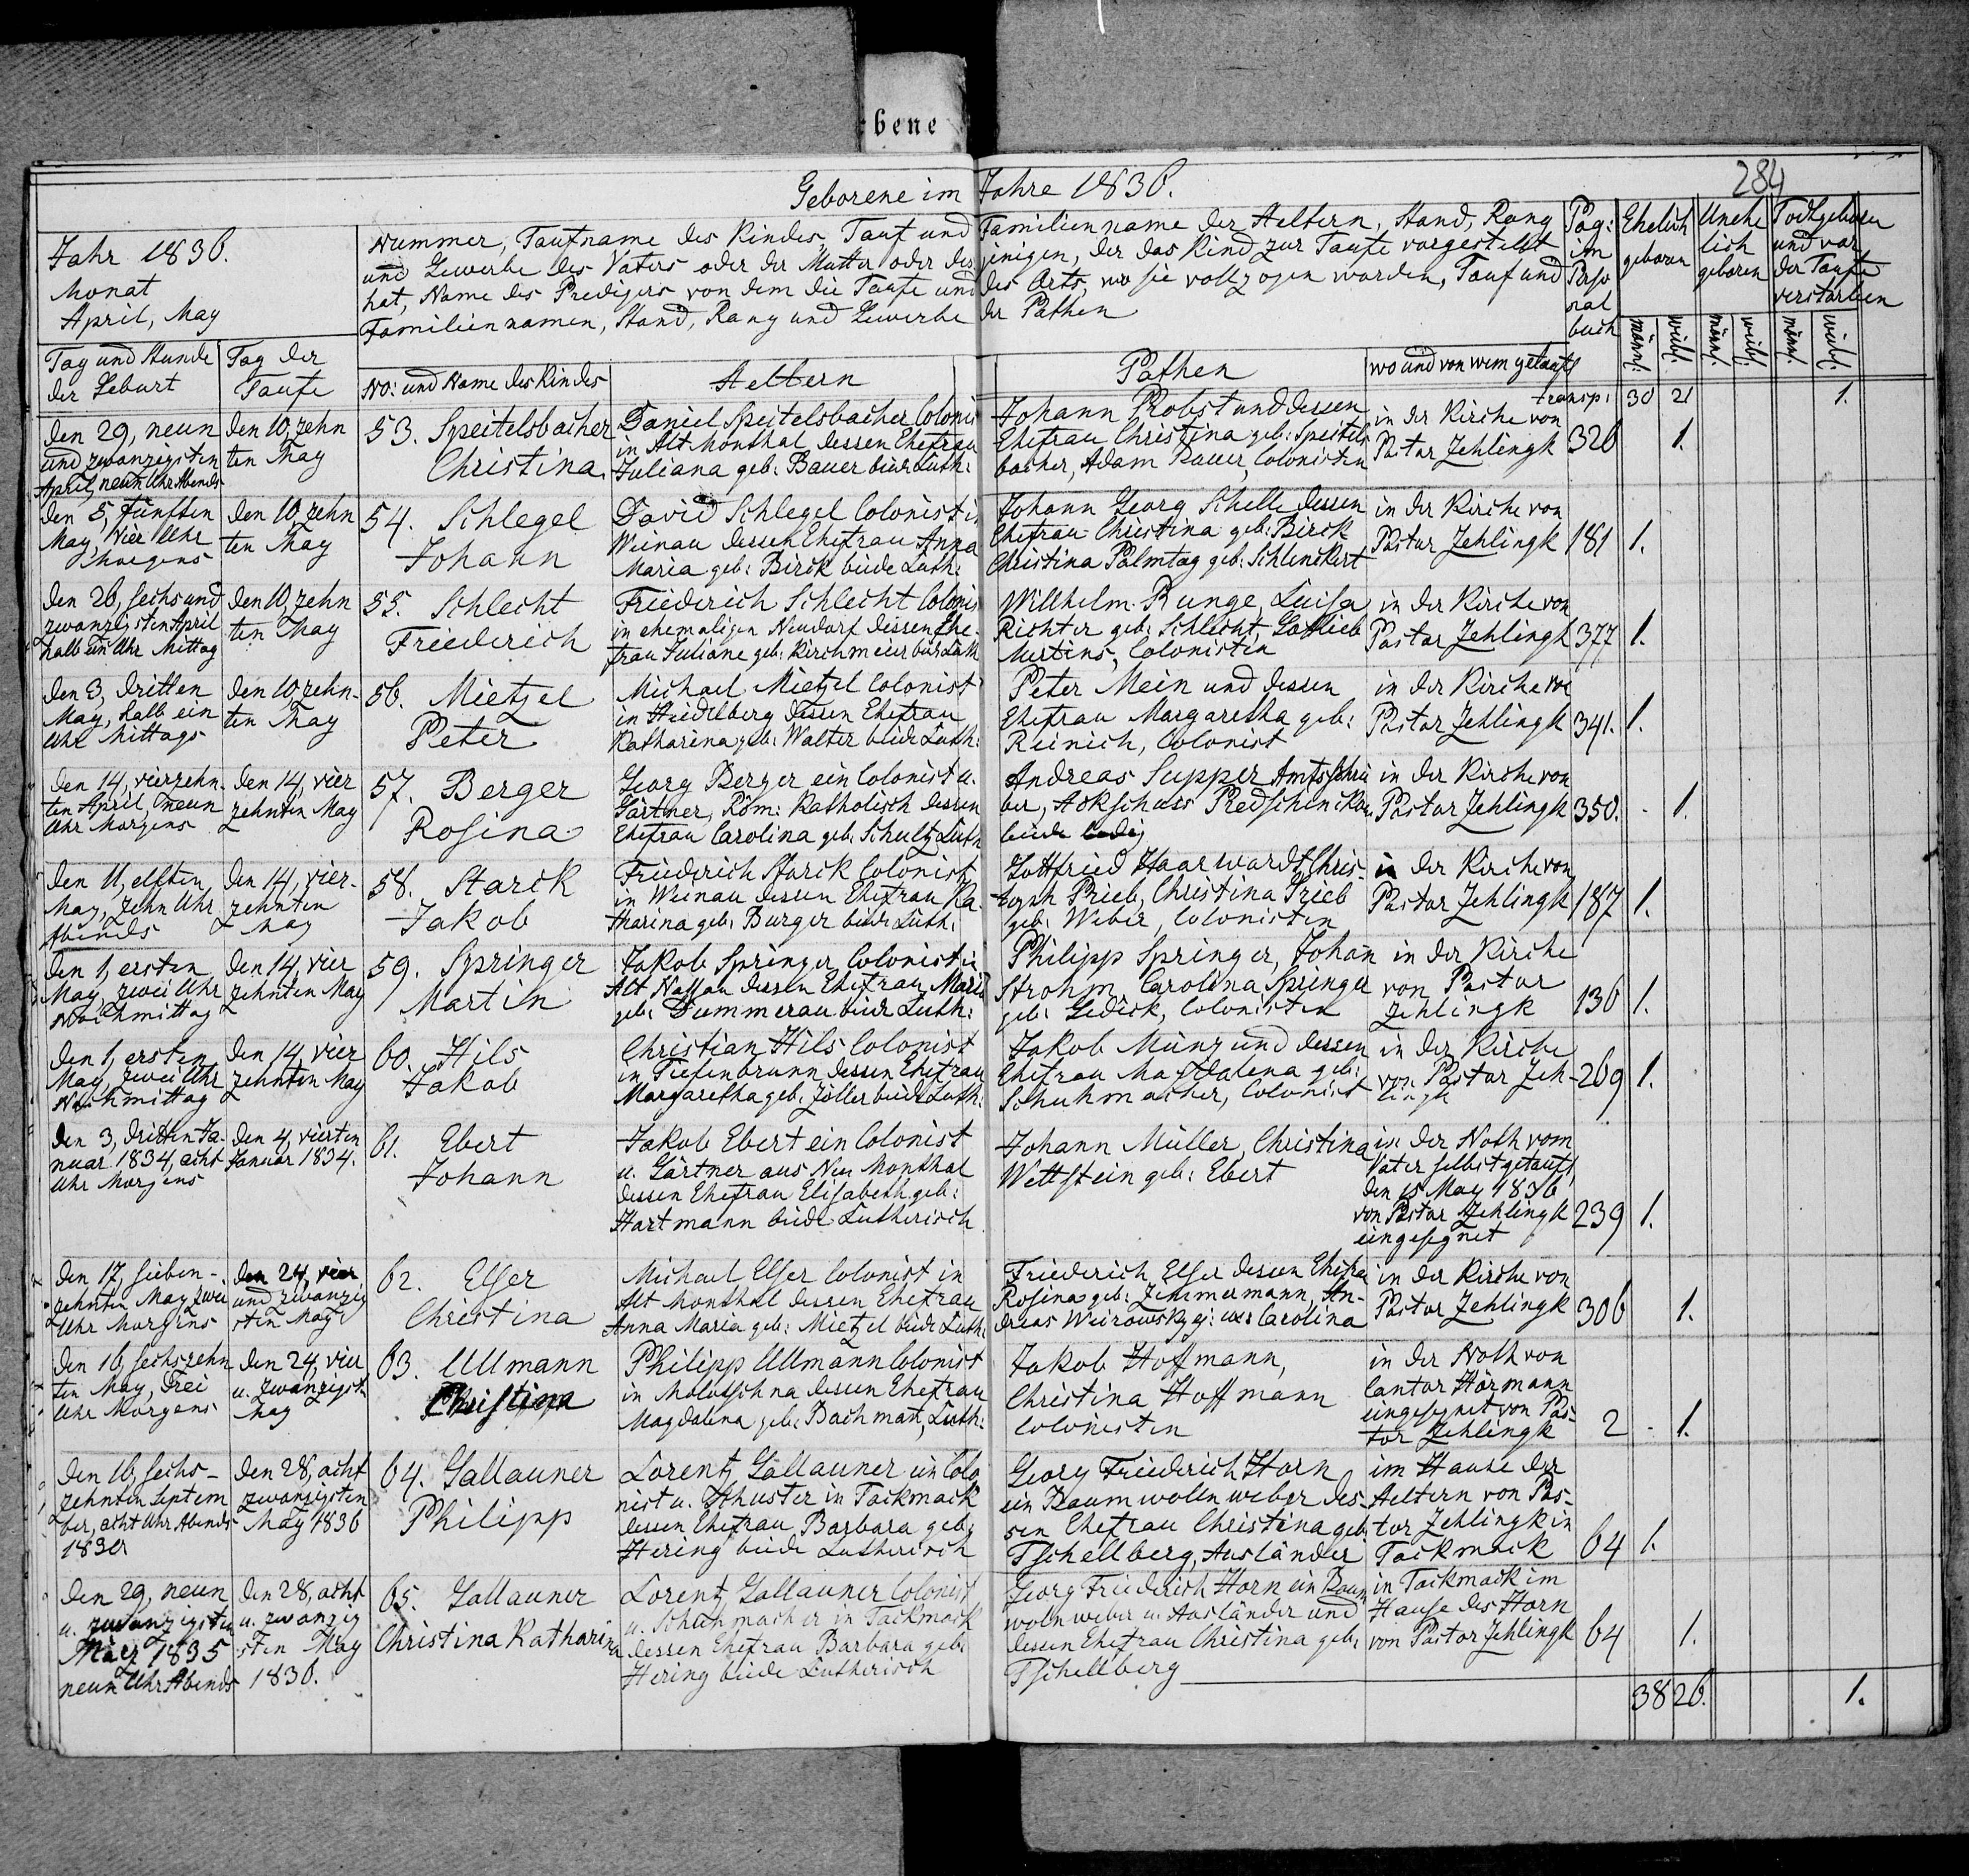 bene
Geborene im Jahre 1836.
284
Jahr 1836.
Monat
April, May
Nummer, Taufname des Kindes, Tauf und Familienname der Aeltern, Stand, Rang
und Gewerbe des Vaters oder der Mutter oder desjenigen, der das Kind zur Taufe vorgestellt
hat, Name des Predigers von dem die Taufe und des Orts, wo sie vollzogen worden, Tauf und
Familiennamen, Stand, Rang und Gewerbe der Pathen
Pag:
im
Perso
nal
buch
Ehelich
geboren
Unehe
lich
geboren
Todtgeboren
und vor
der Taufe
verstorben
männl:
weibl:
männl:
weibl:
männl:
weibl:
Tag und Stunde
der Geburt
Tag der
Taufe
No: und Name des Kindes
Aeltern
Pathen
wo und von wem getauft
transp: 30 21 1.
den 29, neun
und zwanzigsten
April, neun Uhr Abends
den 10, zehn
ten May
53. Speitelsbacher
Christina
Daniel Speitelsbacher Colonist
in Alt Monthal dessen Ehefrau
Juliana geb: Bauer beide Luth:
Johann Probst und dessen
Ehefrau Christina geb: Speitels
bacher, Adam Bauer, Colonisten
in der Kirche von
Pastor Zehlingk
326 1.
den 5, fünften
May, vier Uhr
Morgens
den 10, zehn
ten May
54. Schlegel
Johann
David Schlegel Colonist in
Weinau dessen Ehefrau Anna
Maria geb: Birck beide Luth:
Johann Georg Schelle dessen
Ehefrau Christina geb: Birck
Christina Palmtag geb: Schlenckert
in der Kirche von
Pastor Zehlingk
181 1.
den 26, sechs und
zwanzigsten April
halb ein Uhr Mittag
den 10, zehn
ten May
55. Schlecht
Freederich
Friederich Schlecht Colonis
in ehemaligen Neudorf dessen Ehe-
frau Juliane geb: Kirchmeier beide Luth
Willhelm Runge, Luisa
Richter geb: Schlecht, Gottlieb
Mertins, Colonisten
in der Kirche von
Pastor Zehlingk
377 1.
den 3, dritten
May, halb ein
Uhr Mittags
den 10, zehn-
ten May
56. Mietzel
Peter
Michael Mietzel Colonist
in Heidelberg dessen Ehefrau
Katharina geb: Walter beide Luth:
Peter Mein und dessen
Ehefrau Margaretha geb:
Reinich, Colonist
in der Kirche vo
Pastor Zehlingk
341. 1.
den 14, vierzehn-
ten April, neun
Uhr Morgens
den 14, vier
zehnten May
57. Berger
Rosina
Georg Berger ein Colonist u.
Gärtner, Röm: Katholisch dessen
Ehefrau Carolina geb: Schultz Luth
Andreas Supper Amtsschrei
ber,
beide ledig
in der Kirche von
Pastor Zehlingk
350. - 1.
den 11, elften
May, Zehn Uhr
Abends
den 14, vier-
zehnten
May
58. Starck
Jakob
Friederich Starck Colonist
in Weinau dessen Ehefrau Ka-
tharina geb: Burger beide Luth:
Gottfried Haarwardt, Chris-
toph Prieb, Christina Prieb
geb: Weber, Colonisten
in der Kirche von
Pastor Zehlingk
187 1.
den 1, ersten
May, zwei Uhr
Nachmittag
den 14, vier
zehnten May
59. Springer
Martin
Jakob Springer Colonist in
Alt Nassau dessen Ehefrau Maria
geb: Dummerau beide Luth:
Philipp Springer, Johan
Strohm, Carolina Springer
geb: Gedick, Colonisten
in der Kirche
von Pastor
Zehlingk
136 1.
den 1, ersten
May, zwei Uhr
Nachmittag
den 14, vier
zehnten May
60. Hils
Jakob
Christian Hils Colonist
in Tiefenbrunn dessen Ehefrau
Margaretha geb: Zöller beide Luth:
Jakob Münz und dessen
Ehefrau Magdalena geb:
Schuhmacher, Colonist
in der Kirche
von Pastor Zeh-
lingk
269 1.
den 3, dritten Ja-
nuar 1834, acht
Uhr Morgens
den 4, vierten
Januar 1834.
61. Ebert
Johann
Jakob Ebert ein Colonist
u. Gärtner aus Neu Monthal
dessen Ehefrau Elisabeth geb:
Hartmann beide Lutherisch
Johann Müller, Christina
Wettstein geb: Ebert
in der Noth vom
Vater selbst getauft,
den 15 May 1836
von Pastor Zehlingk
eingesegnet
239 1.
den 17, sieben-
zehnten May, zwei
Uhr Morgens
den 24, vier
und zwanzig
sten May
62. Elser
Christina
Michael Elser Colonist in
Alt Monthal dessen Ehefrau
Anna Maria geb: Mietzel beide Luth:
Friederich Elser dessen Ehefra
Rosina geb: Zimmermann, An-
dreas Weirowsky ej: uxs Carolina
in der Kirche von
Pastor Zehlingk
306 1.
den 16, sechszehn
ten May, drei
Uhr Morgens
den 24, vier
u. zwanzigst:
May
63. Ullmann
Christina
Philipp Ullmann Colonist
in Molotschna dessen Ehefrau
Magdalena geb: Bachman, Luth:
Jakob Hoffmann,
Christina Hoffmann
Colonisten
in der Noth von
Cantor Hörmann
eingesegnet von Pas-
tor Zehlingk
2 - 1.
den 16, sechs-
zehnten Septem
ber, acht Uhr Abends
den 28, acht
zwanzigsten
May 1836
64. Gallauner
Philipp
Lorentz Gallauner ein Colo
nist u. Schuster in Tackmack
dessen Ehefrau Barbara geb:
Hering beide Lutherisch
Georg Friederich Horn
ein Baumwollnweber des-
sen Ehefrau Christina geb:
Tschellberg, Ausländer
im Hause der
Aeltern von Pas-
tor Zehlingk in
Tackmack
64 1.
den 29, neun
u. zwanzigsten
März 1835
neun Uhr Abends
den 28, acht
u. zwanzig
sten May
1836.
65. Gallauner
Christina Katharina
Lorentz Gallauner Colonist
u. Schuhmacher in Tackmack
dessen Ehefrau Barbara geb:
Hering beide Lutherisch
Georg Friederich Horn ein Baum
wolnweber u. Ausländer und
dessen Ehefrau Christina geb:
Tschellberg
in Tackmack im
Hause des Horn
von Pastor Zehlingk
64 1.
38 26. 1.